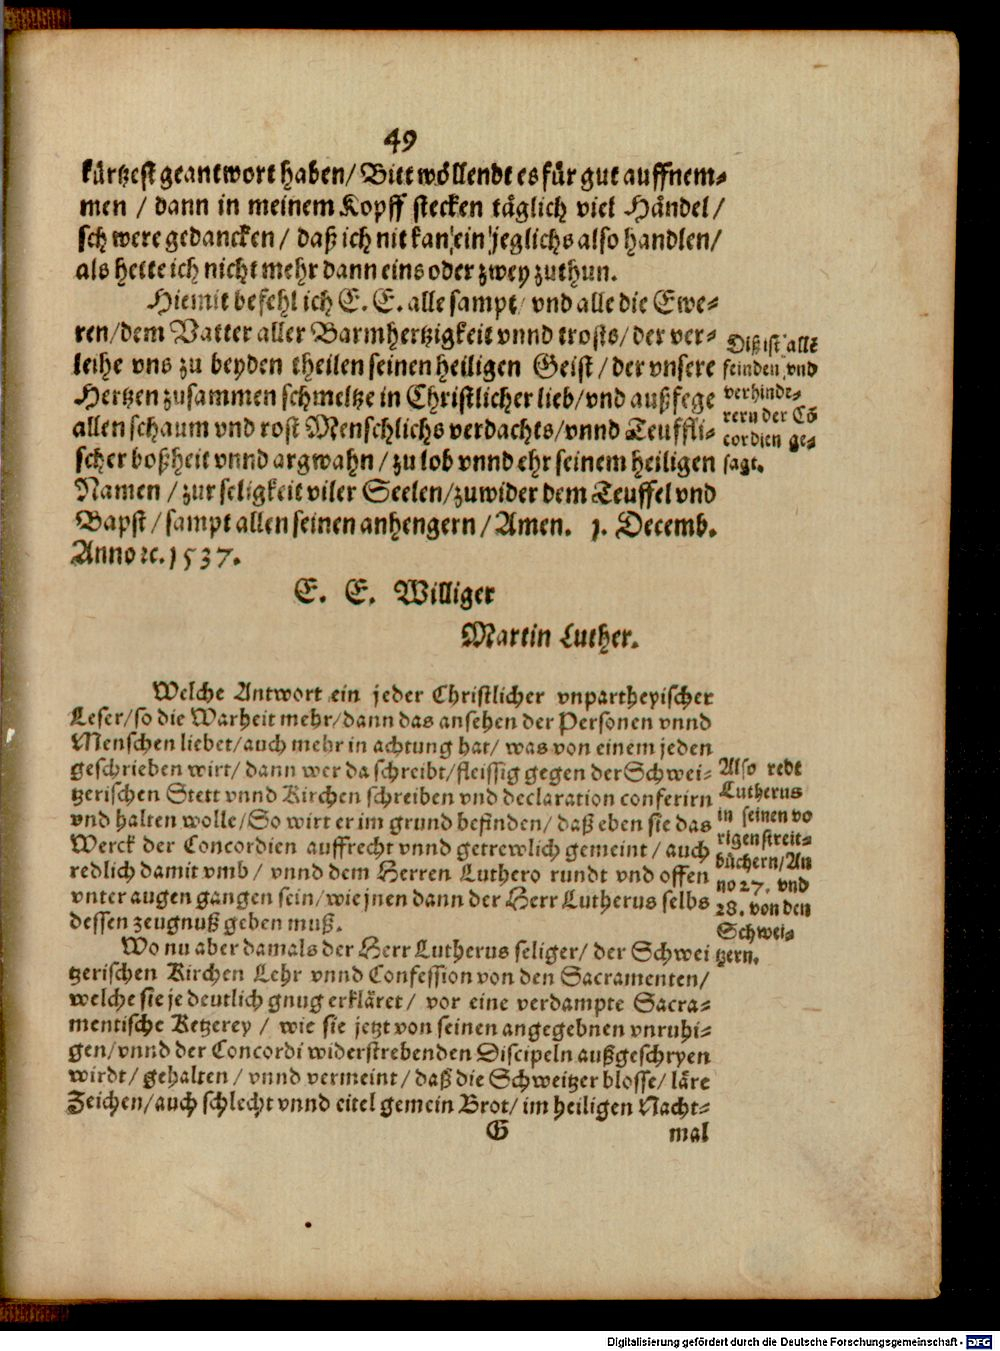 49
kürtzest geantwort haben/ Bitt wöllendt es für gut auffnem-
men / dann in meinem Kopff stecken täglich viel Händel/
schwere gedancken / daß ich nit kan ein jeglichs also handlen/
als hette ich nicht mehr dann eins oder zwey zuthun.
Hiemit befehl ich E. E. alle sampt/ vnd alle die Ewe-
ren/dem Vatter aller Barmhertzigkeit vnnd trosts/ der ver-
leihe vns zu beyden theilen seinen heiligen Geist / der vnsere
Hertzen zusammen schmeltze in Christlicher lieb/vnd außfege
allen schaum vnd rost Menschlichs verdachts/vnnd Teuffli-
scher boßheit vnnd argwahn / zu lob vnnd ehr seinem heiligen
Namen / zur seligkeit viler Seelen/zuwider dem Teuffel vnd
Bapst / sampt allen seinen anhengern / Amen. 1. Decemb.
Anno ꝛc. 1537.
Diß ist alle
feinden vnd
verhinde-
rern der Cō
cordien ge-
sagt.
E. E. Williger
Martin Luther.
Welche Antwort ein jeder Christlicher vnpartheyischer
Leser/so die Warheit mehr/dann das ansehen der Personen vnnd
Menschen liebet/auch mehr in achtung hat/ was von einem jeden
geschrieben wirt/ dann wer da schreibt/fleissig gegen der Schwei-
tzerischen Stett vnnd Kirchen schreiben vnd declaration conferirn
vnd halten wolle/So wirt er im grund befinden/ daß eben sie das
Werck der Concordien auffrecht vnnd getrewlich gemeint / auch
redlich damit vmb / vnnd dem Herren Luthero rundt vnd offen
vnter augen gangen sein/wie jnen dann der Herr Lutherus selbs
dessen zeugnuß geben muß.
Also redt
Lutherus
in seinen vo
rigen streit-
büchern/An
no 27. vnd
28. von den
Schwei-
tzern.
Wo nu aber damals der Herr Lutherus seliger/ der Schwei
tzerischen Kirchen Lehr vnnd Confession von den Sacramenten/
welche sie je deutlich gnug erkläret / vor eine verdampte Sacra-
mentische Ketzerey / wie sie jetzt von seinen angegebnen vnruhi-
gen/vnnd der Concordi widerstrebenden Discipeln außgeschryen
wirdt/ gehalten / vnnd vermeint / daß die Schweitzer blosse/ läre
Zeichen/auch schlecht vnnd eitel gemein Brot/ im heiligen Nacht-
G mal
Digitalisierung gefördert durch die Deutsche Forschungsgemeinschaft - DFG